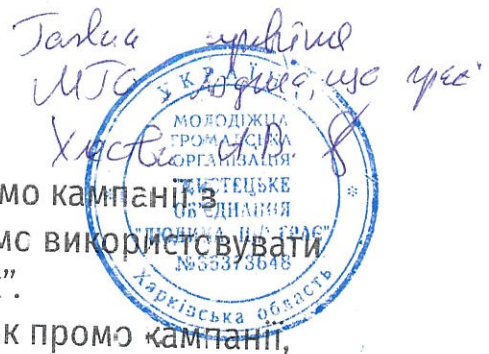 Голова правління
МГО "Людина, що грає"
УКРАЇНА
МОЛОДІЖНА
ГРОМАДСЬКА
ОРГАНІЗАЦІЯ
МИСТЕЦЬКЕ
ОБ'ЄДНАННЯ
"ЛЮДИНА, ЩО ГРАЄ"
Харківська область
мо кампанії з
мо використовувати
”.
к промо кампанії,